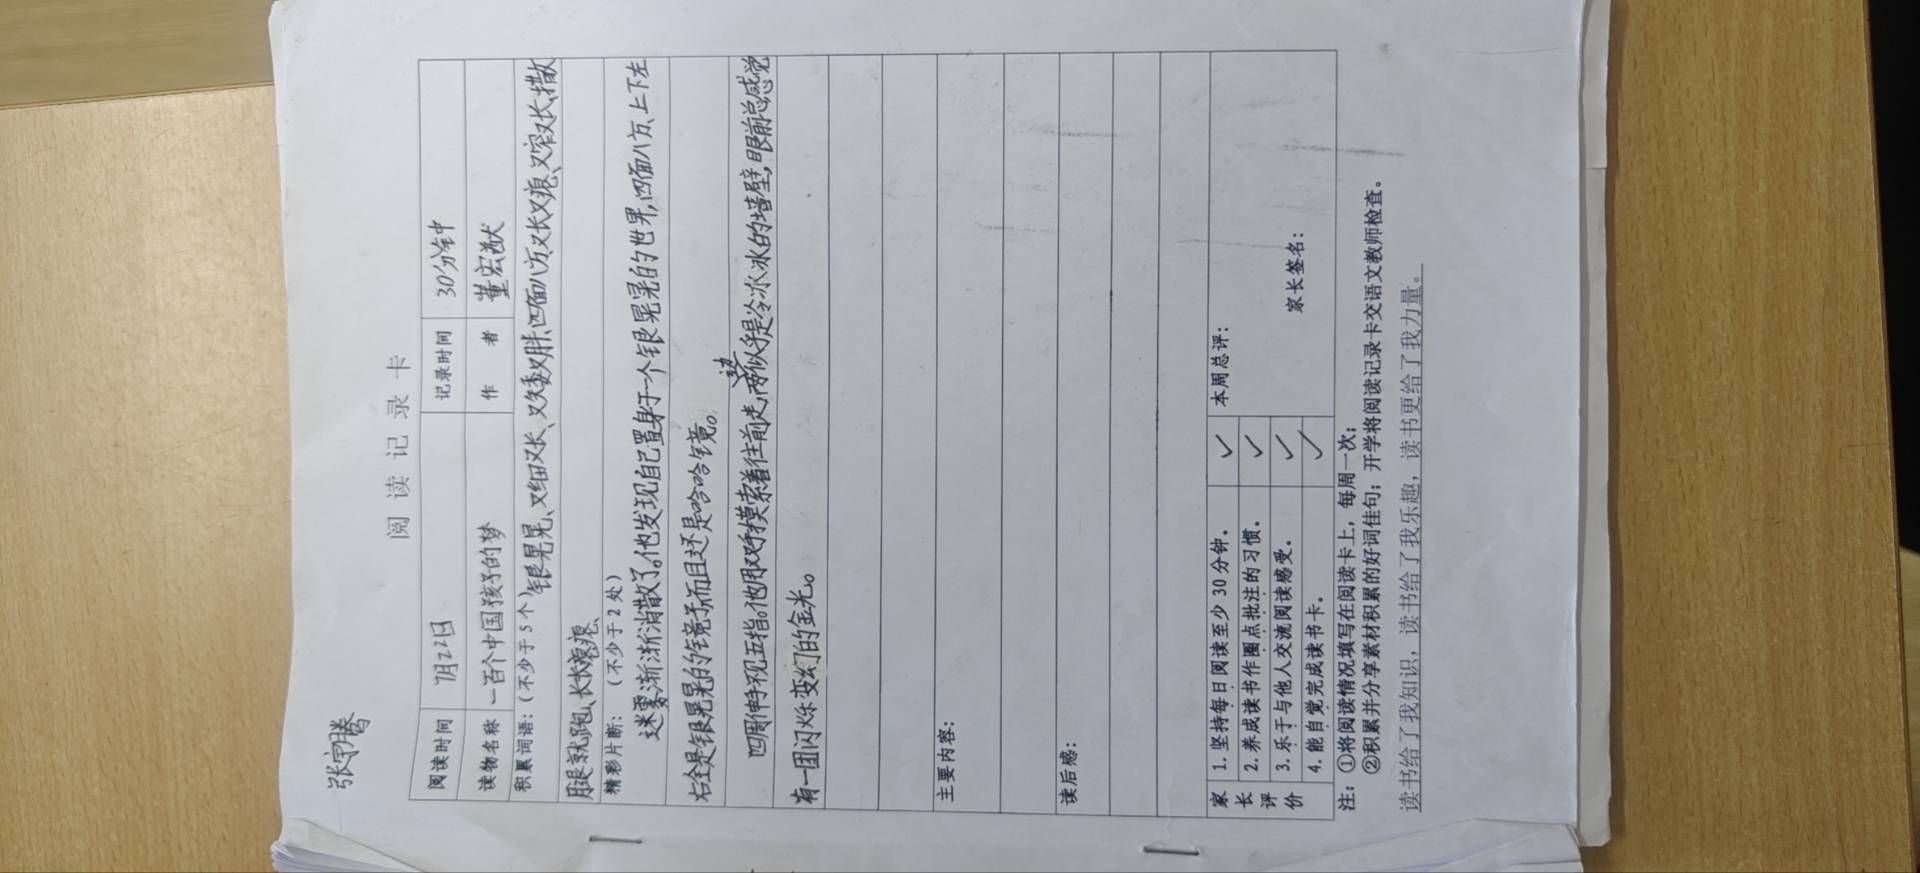 张宇腾
阅 读 记 录 卡
阅读时间 7月22日 记录时间 30分钟
读物名称 一百个中国孩子的梦 作 者 董宏猷
积累词语：（不少于5个）银晃晃、又细又长、又矮又胖、四面八方、又长又瘪、又窄又长、撒
腿就跑、长长瘪瘪、
精彩片断：（不少于2处）
迷雾渐渐消散了。他发现自己置身于一个银晃晃的世界，四面八方、上下左
右全是银晃晃的镜子，而且还是哈哈镜。
四周伸手不见五指。他用双手摸索着往前走，两边似乎是冷冰冰的墙壁，眼前总感觉
有一团闪烁变幻的金光。
主要内容：
读后感：
家长评价
1. 坚持每日阅读至少 30 分钟。 ✓
2. 养成读书作圈点批注的习惯。 ✓
3. 乐于与他人交流阅读感受。 ✓
4. 能自觉完成读书卡。 ✓
本周总评：
家长签名：
注：①将阅读情况填写在阅读卡上，每周一次；
②积累并分享素材积累的好词佳句；开学将阅读记录卡交语文教师检查。
读书给了我知识，读书给了我乐趣，读书更给了我力量。